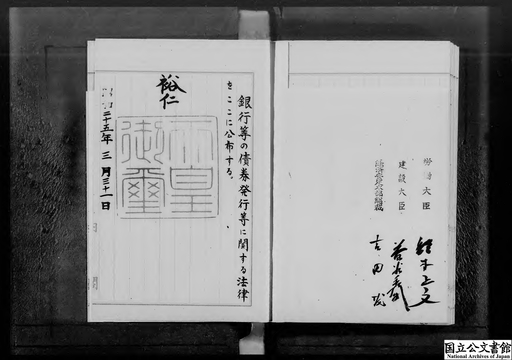 銀行等の債券発行等に関する法律
をここに公布する。
裕仁
天皇
御璽
昭和二十五年三月三十一日
労働大臣
建設大臣
鈴木正文
益谷秀次
吉田茂
国立公文書館
National Archives of Japan